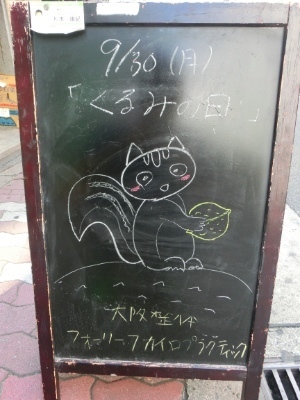 9/30(月)
「くるみの日」
大阪整体
フォーリーフカイロプラクティック